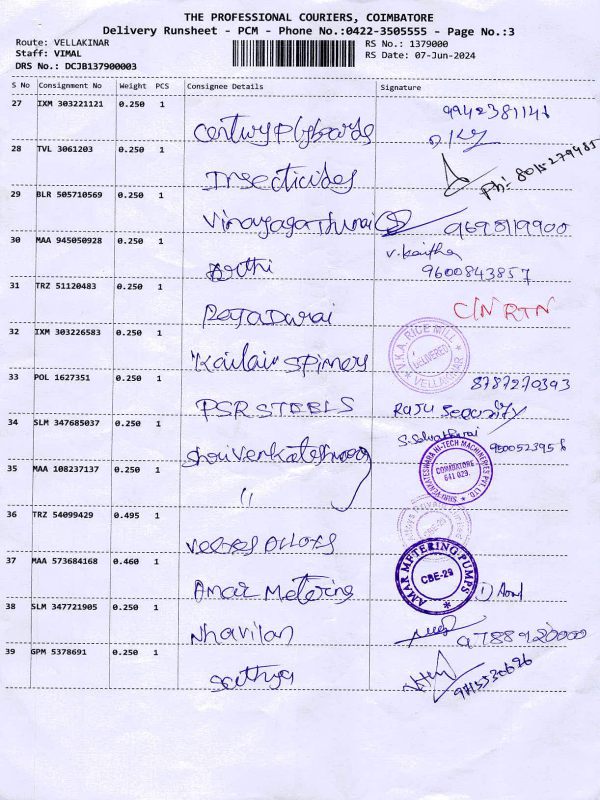 THE PROFESSIONAL COURIERS, COIMBATORE
Delivery Runsheet - PCM - Phone No.:0422-3505555 - Page No.:3
Route: VELLAKINAR
Staff: VIMAL
DRS No.: DCJB137900003
RS No.: 1379000
RS Date: 07-Jun-2024
S No Consignment No Weight PCS Consignee Details Signature
27 IXM 303221121 0.250 1 Century Plyboards
28 TVL 3061203 0.250 1 Insecticides Ph:
29 BLR 505710569 0.250 1 Vinayaga Thurai
30 MAA 945050928 0.250 1 Arthi 9600843857
31 TRZ 51120483 0.250 1 RajaDurai C/N RTN
32 IXM 303226583 0.250 1 "Kailai" V.K.A. RICE MILL DELIVERED VELLAKINAR
33 POL 1627351 0.250 1 PSR STEELS 8787270393 RAJU Security
34 SLM 347685037 0.250 1
35 MAA 108237137 0.250 1 " SHRI VENKATESHWARA HI-TECH MACHINERIES PVT. LTD. COIMBATORE 641 029.
36 TRZ 54099429 0.495 1
37 MAA 573684168 0.460 1 Amar Metering AMAR METERING PUMPS CBE-29
38 SLM 347721905 0.250 1 Nhavilan 9788920000
39 GPM 5378691 0.250 1 Sathya 9715530626